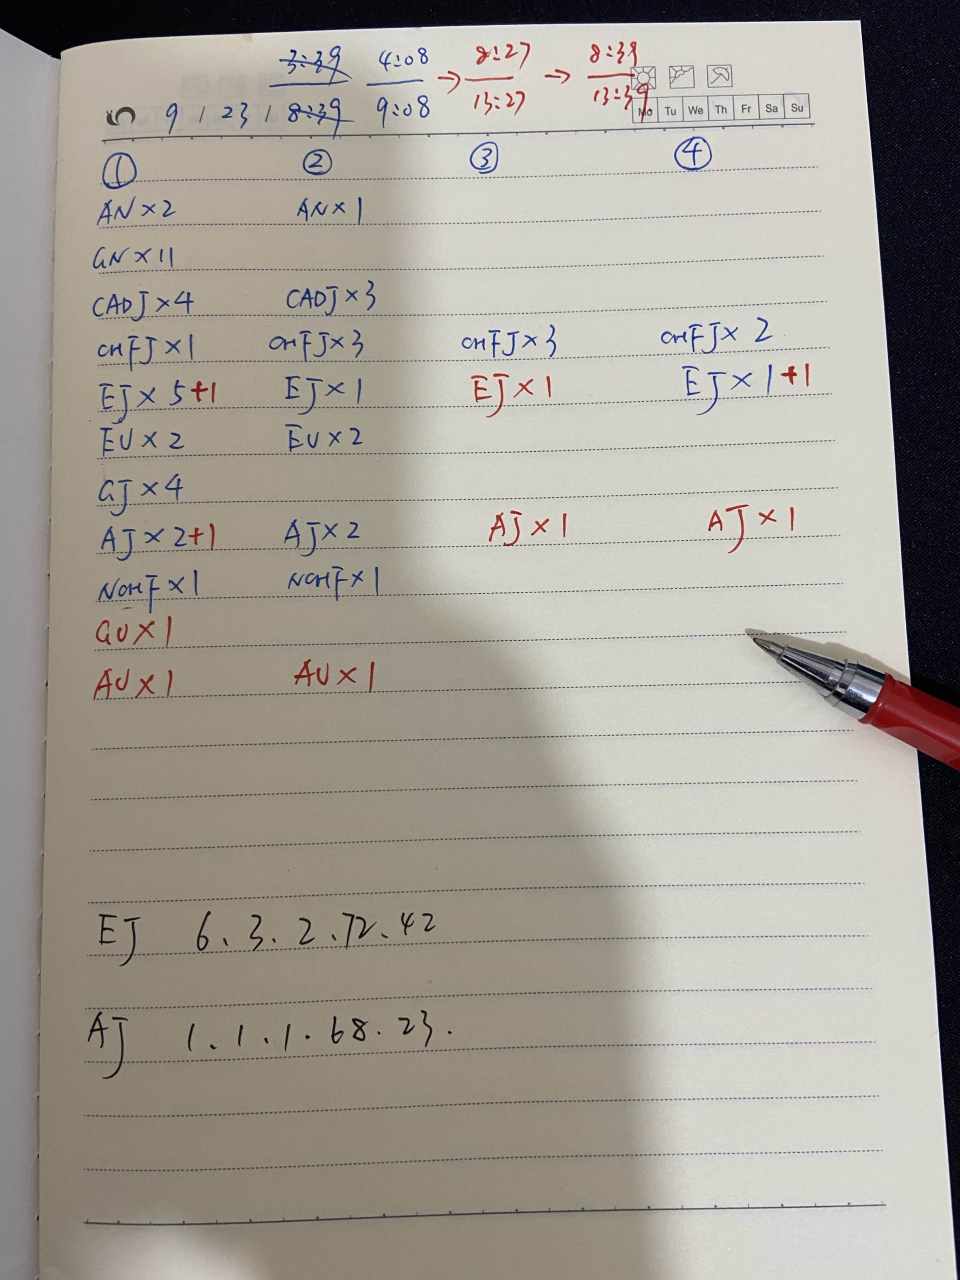 3:39 4:08 → 8:27 → 8:39
9 / 23 / 8:39 9:08 13:27 13:39
Mo Tu We Th Fr Sa Su
① ② ③ ④
AN×2 AN×1
GN×11
CADJ×4 CADJ×3
OHFJ×1 OHFJ×3 OHFJ×3 OHFJ×2
EJ×5+1 EJ×1 EJ×1 EJ×1+1
EU×2 EU×2
GJ×4
AJ×2+1 AJ×2 AJ×1 AJ×1
NOHF×1 NOHF×1
GU×1
AU×1 AU×1
EJ 6、3、2、72、42
AJ 1.1.1.68.23.